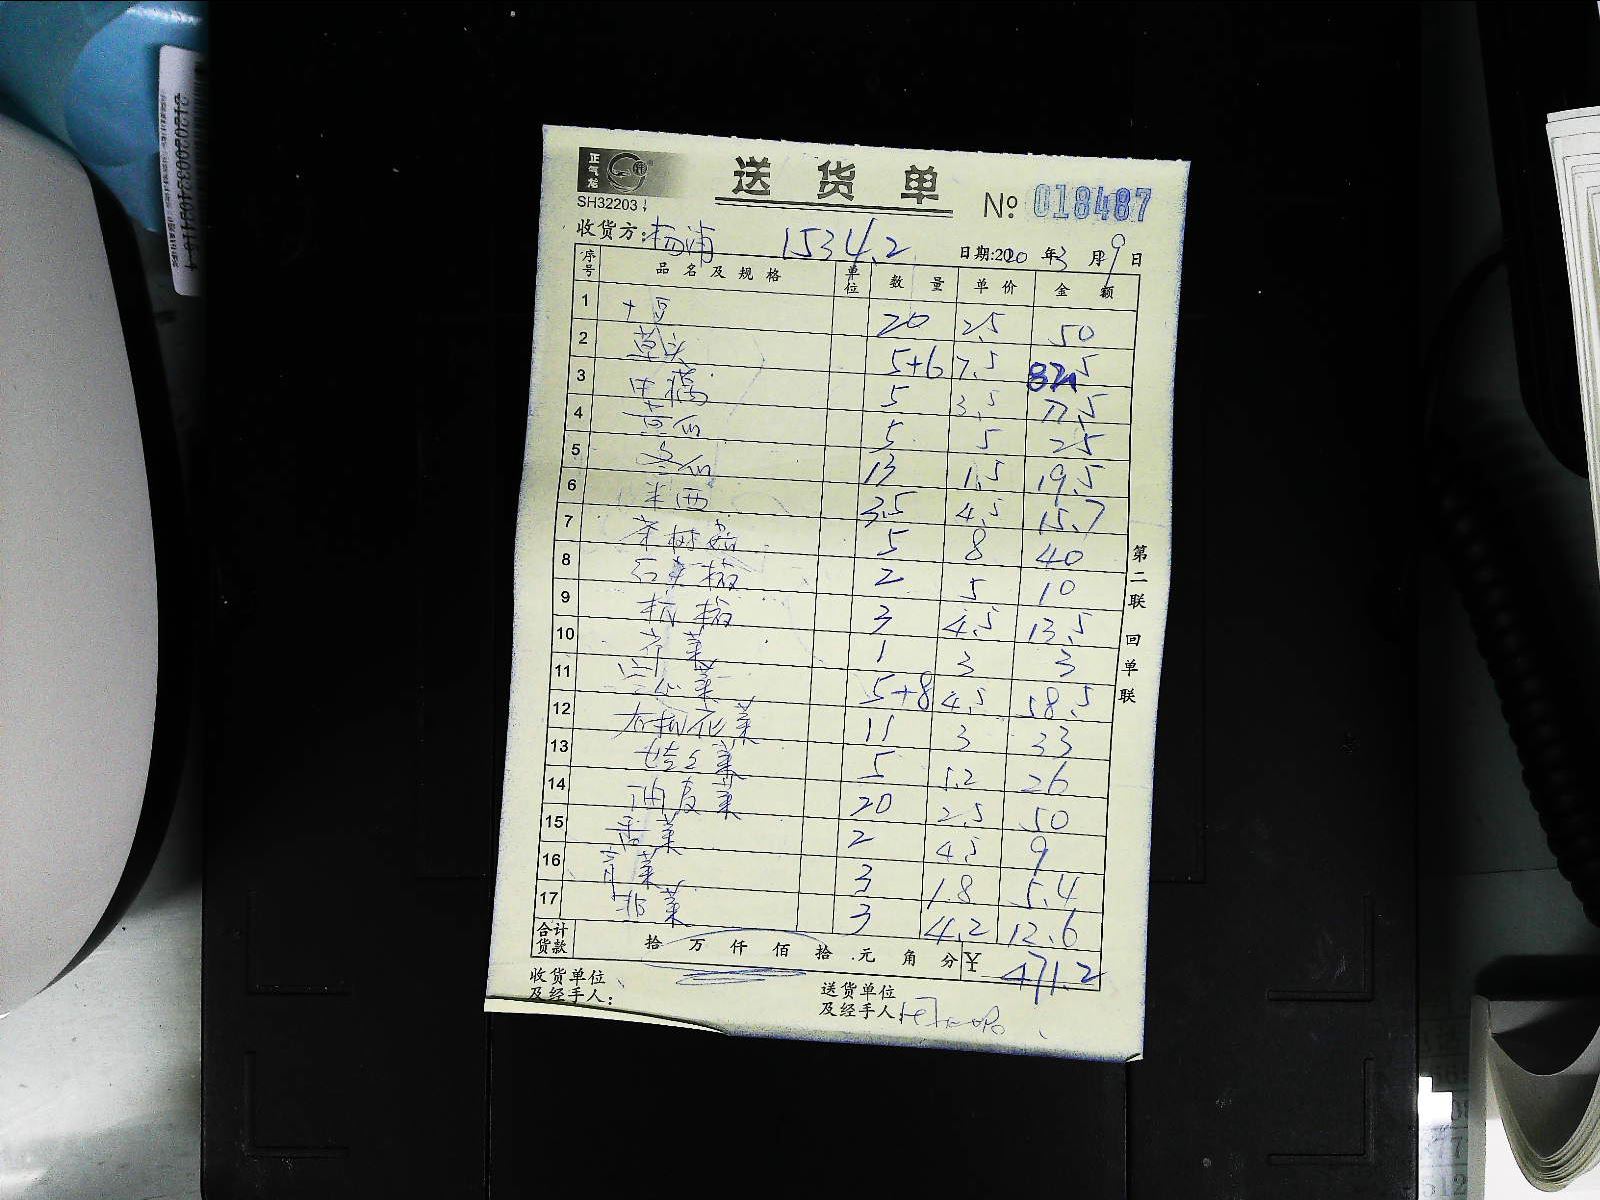 正气龙
SH32203
送货单
№ 018487
收货方:杨浦 1534.2 日期:2020年3月19日
序号 品名及规格 单位 数量 单价 金额
1 土豆 20 2.5 50
2 草头 5+6 7.5 82.5
3 5 3.5 17.5
4 5 5 25
5 冬瓜 13 1.5 19.5
6 米西 3.5 4.5 15.7
7 茶树菇 5 8 40
8 石头椒 2 5 10
9 杭椒 3 4.5 13.5
10 芹菜 1 3 3
11 空心菜 5+8 4.5 58.5
12 有机花菜 11 3 33
13 娃娃菜 5 5.2 26
14 油麦菜 20 2.5 50
15 香菜 2 4.5 9
16 青菜 3 1.8 5.4
17 韭菜 3 4.2 12.6
合计货款 拾万仟佰拾元角分 ¥ 471.2
收货单位及经手人:
送货单位及经手人:
第二联 回单联